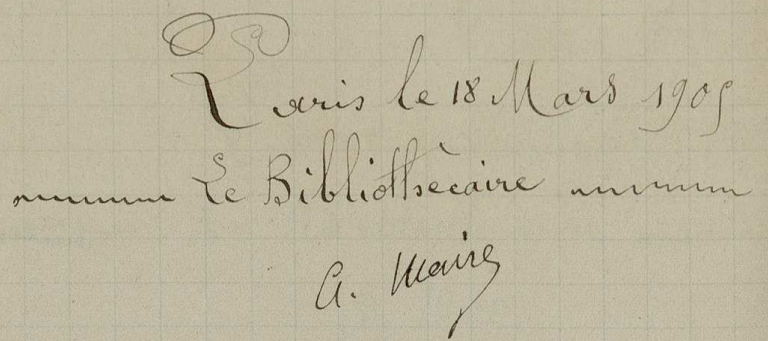 Paris le 18 Mars 1905
Le Bibliothècaire
A. Maire